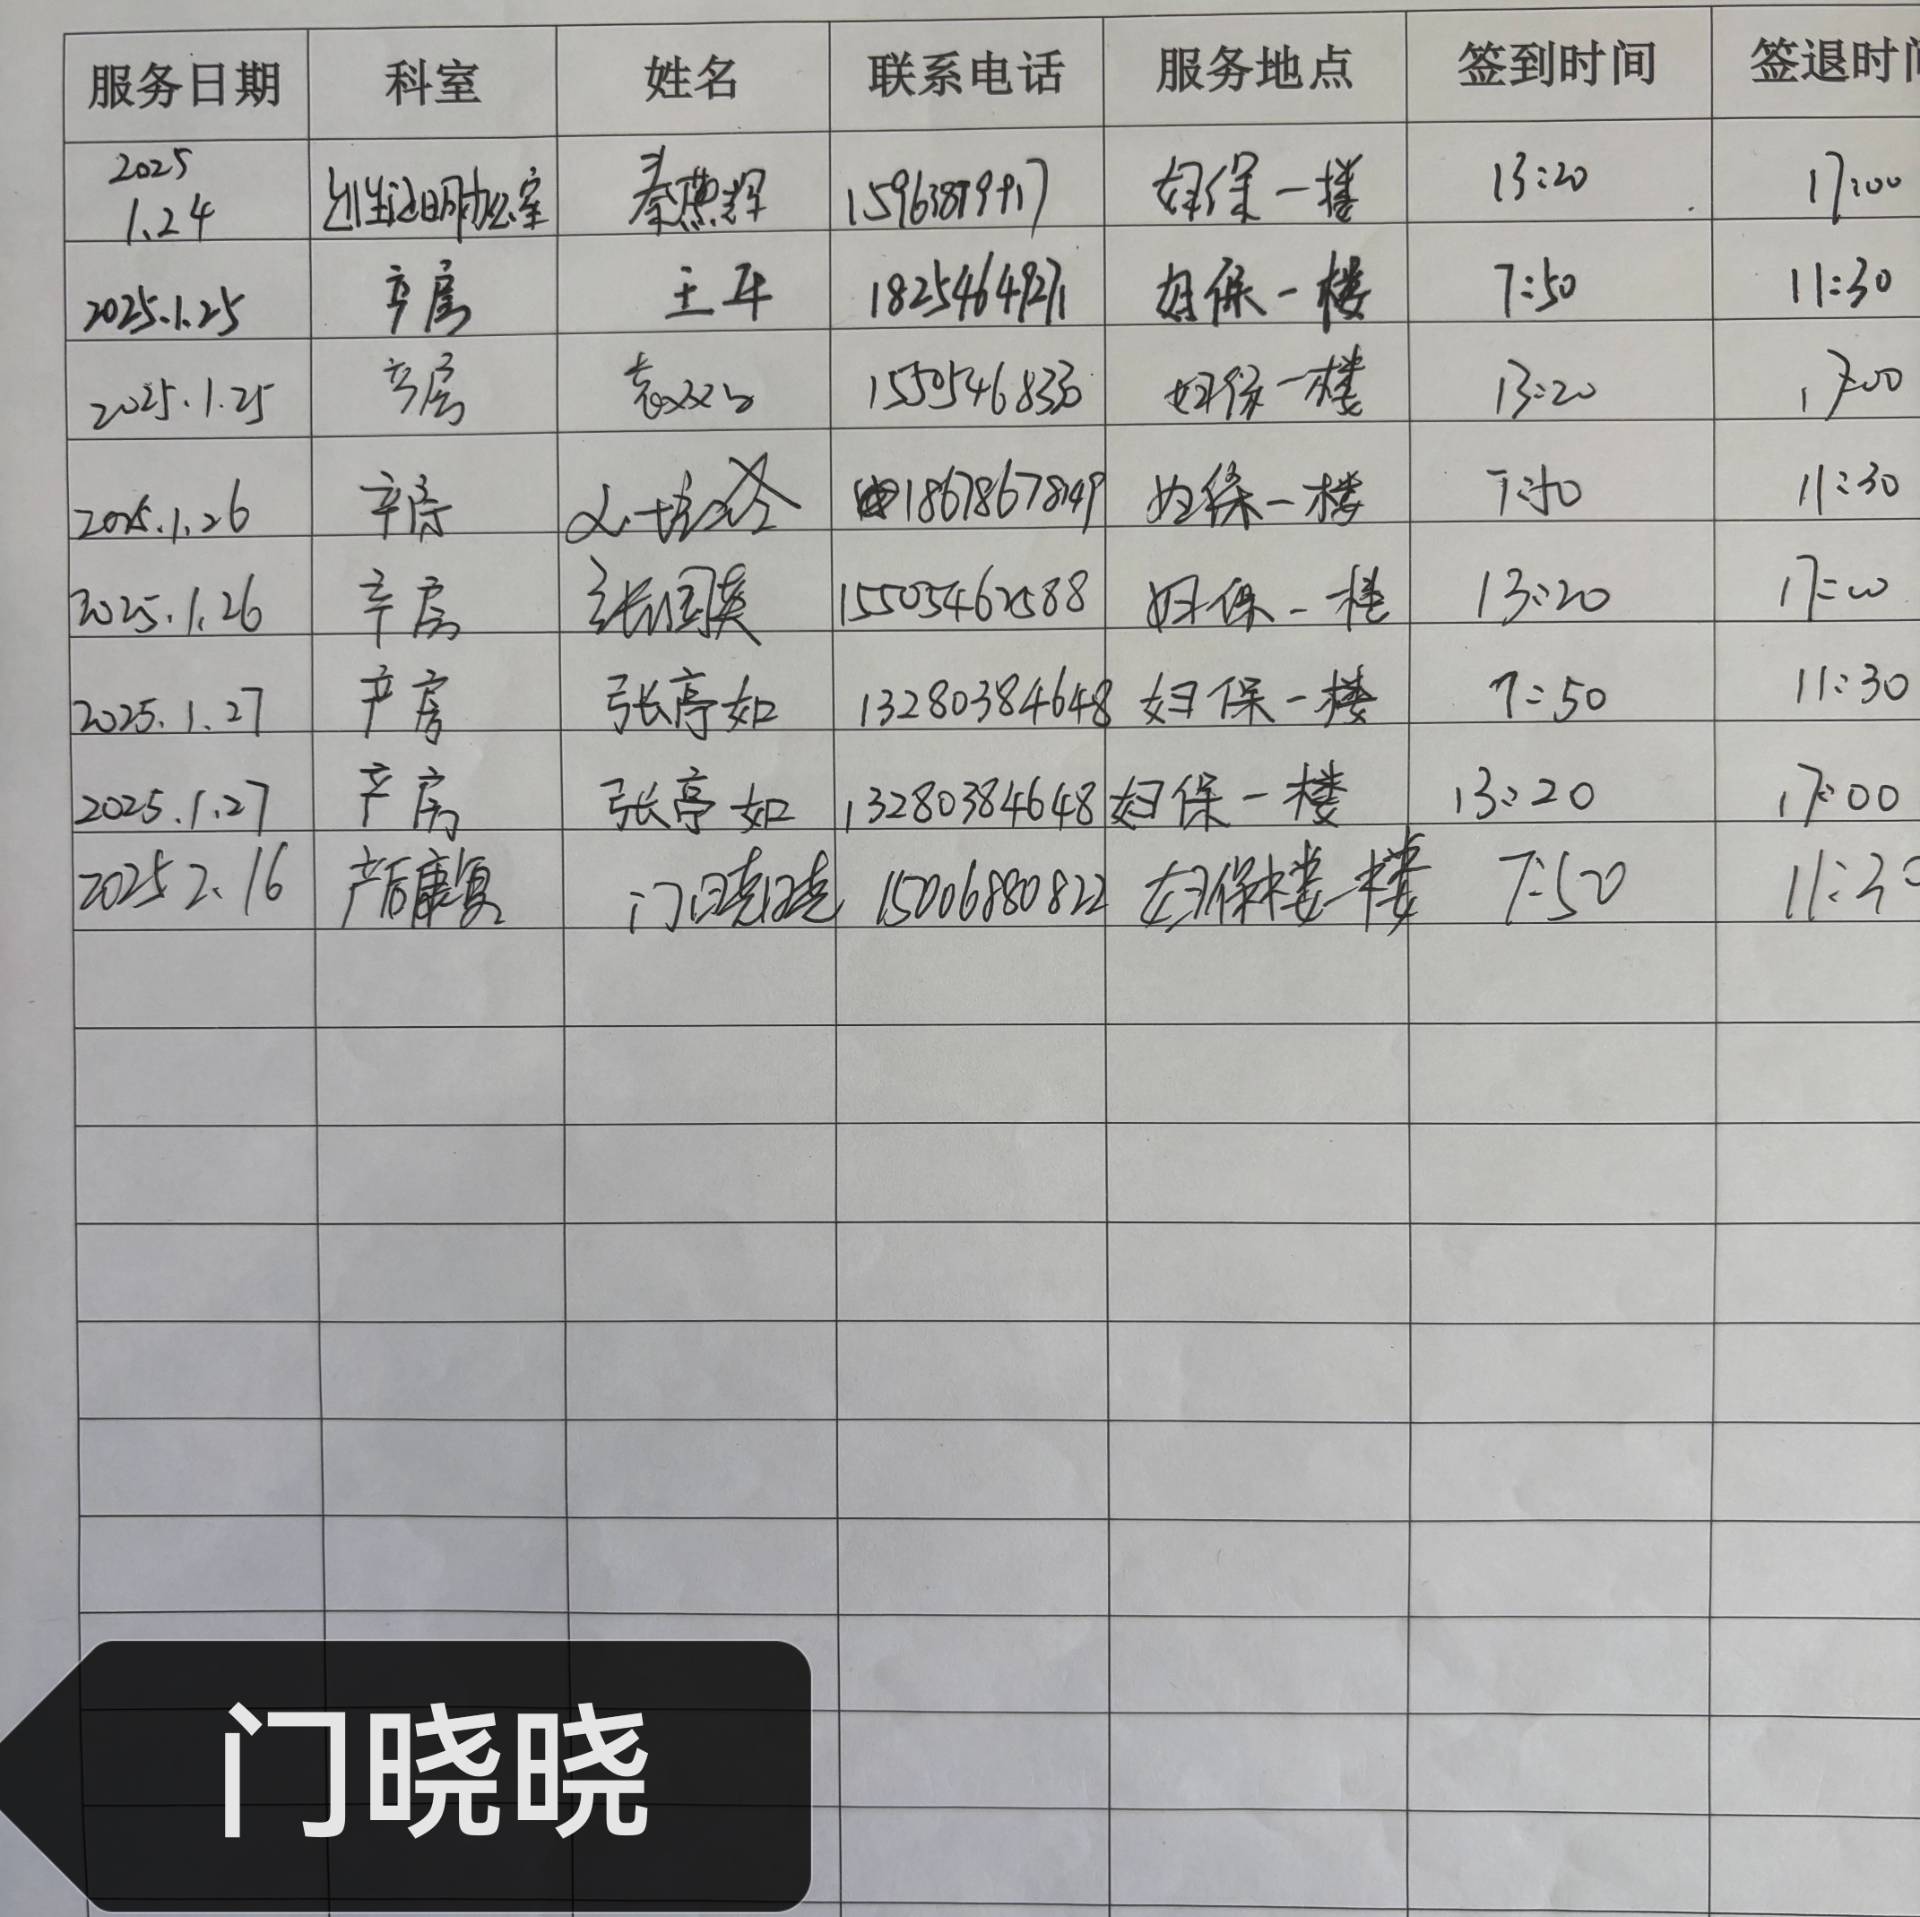 服务日期 科室 姓名 联系电话 服务地点 签到时间 签退时间
2025
1.24 出生证明办公室 秦燕辉 妇保一楼 13:20 17:00
2025.1.25 产房 王军 妇保一楼 7:50 11:30
2025.1.25 产房 妇保一楼 13:20 17:00
2025.1.26 产房 18678678149 妇保一楼 7:50 11:30
2025.1.26 产房 张国英 15505462588 妇保一楼 13:20 17:00
2025.1.27 产房 张亭如 13280384648 妇保一楼 7:50 11:30
2025.1.27 产房 张亭如 13280384648 妇保一楼 13:20 17:00
2025 2.16 产后康复 门晓晓 15006880822 妇保楼一楼 7:50 11:30
门晓晓